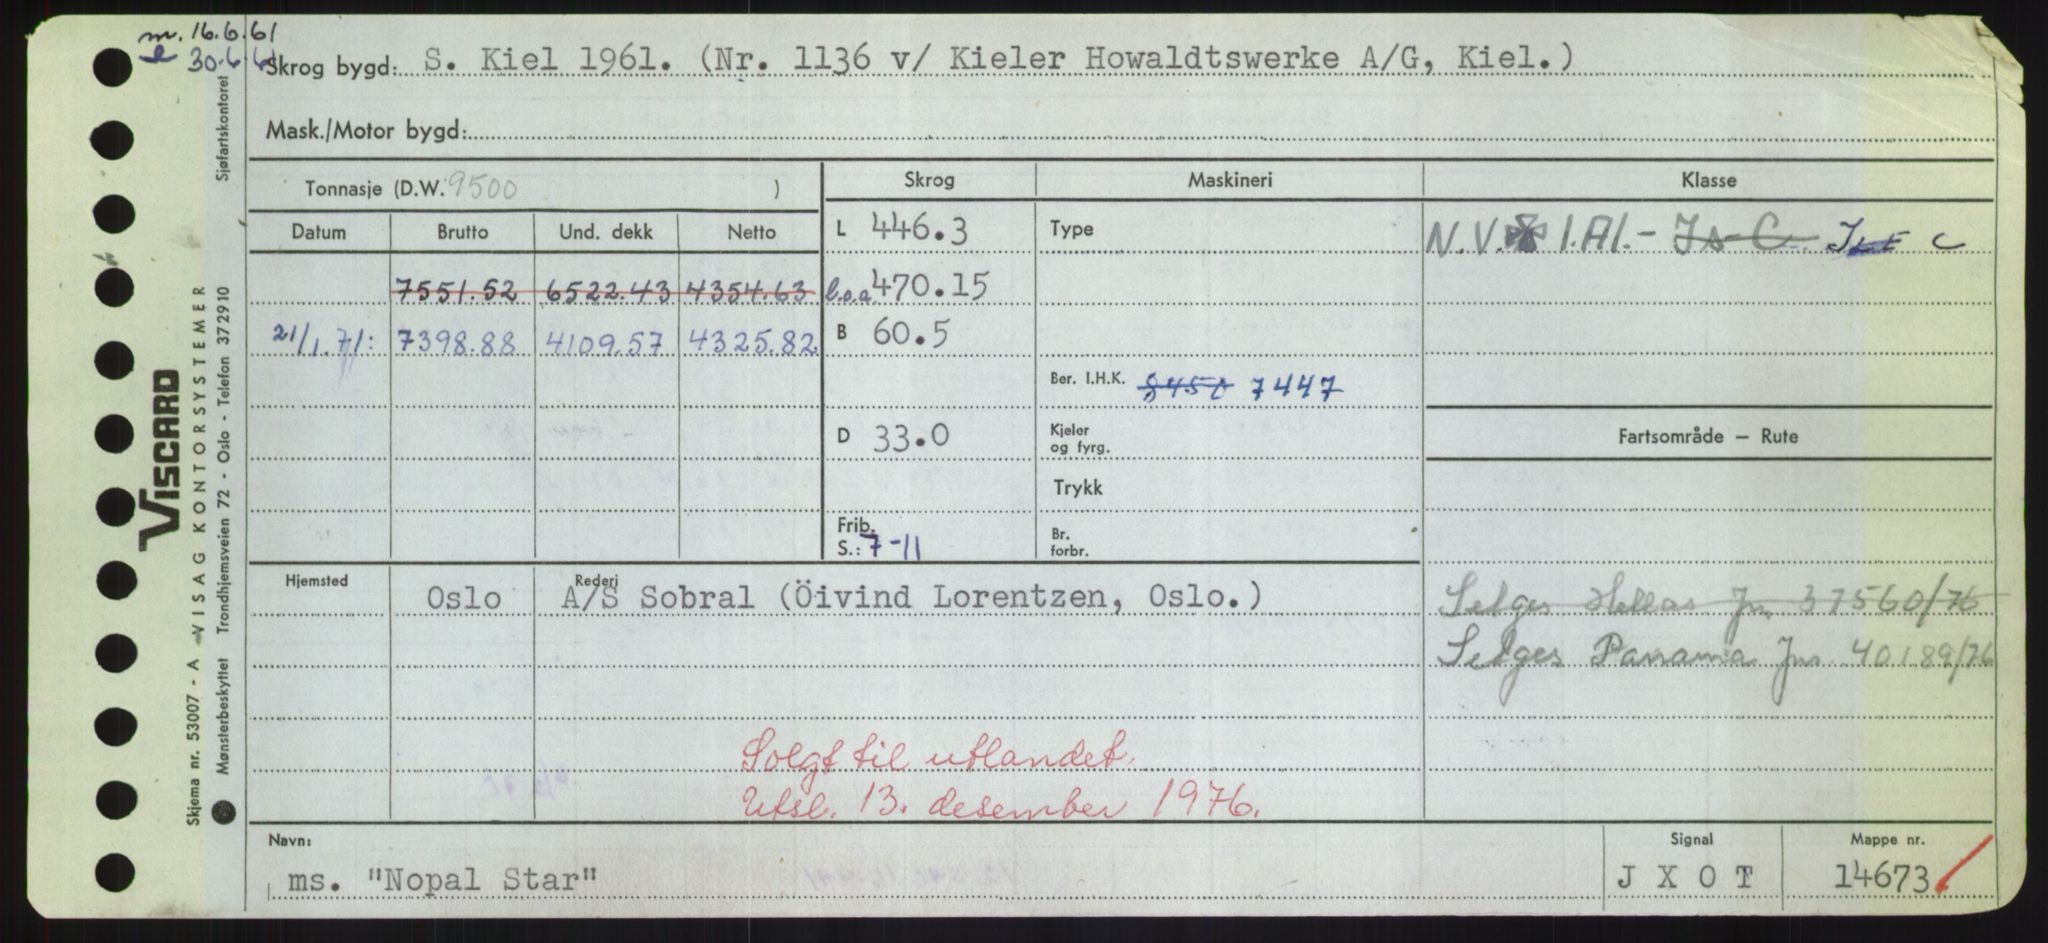 m. 16.6.61
l 30.6.61
Skrog bygd: S. Kiel 1961. (Nr. 1136 v/ Kieler Howaldtswerke A/G, Kiel.)
Mask./Motor bygd:
Tonnasje (D.W. 9500 )
Skrog Maskineri Klasse
Datum Brutto Und. dekk Netto
L 446.3 Type N.V. 1.A1.- Is C C
7551.52 6522.43 4354.63 l.o.a 470.15
21/1.71: 7398.88 4109.57 4325.82 B 60.5
Ber. I.H.K. 8450 7447
D 33.0 Kjeler og fyrg. Fartsområde – Rute
Trykk
Frib. S.: 7-11 Br. forbr.
Hjemsted Oslo Rederi A/S Sobral (Öivind Lorentzen, Oslo.)
Selges Hellas Jnr 37560/76
Selges Panama Jnr 40189/76
Solgt til utlandet.
Utsl. 13. desember 1976.
Navn: ms. "Nopal Star"
Signal J X O T
Mappe nr. 14673
VISCARD
Skjema nr. 53007 - A - VISAG KONTORSYSTEMER
Mønsterbeskyttet Trondhjemsveien 72 - Oslo - Telefon 37 29 10 Sjøfartskontoret